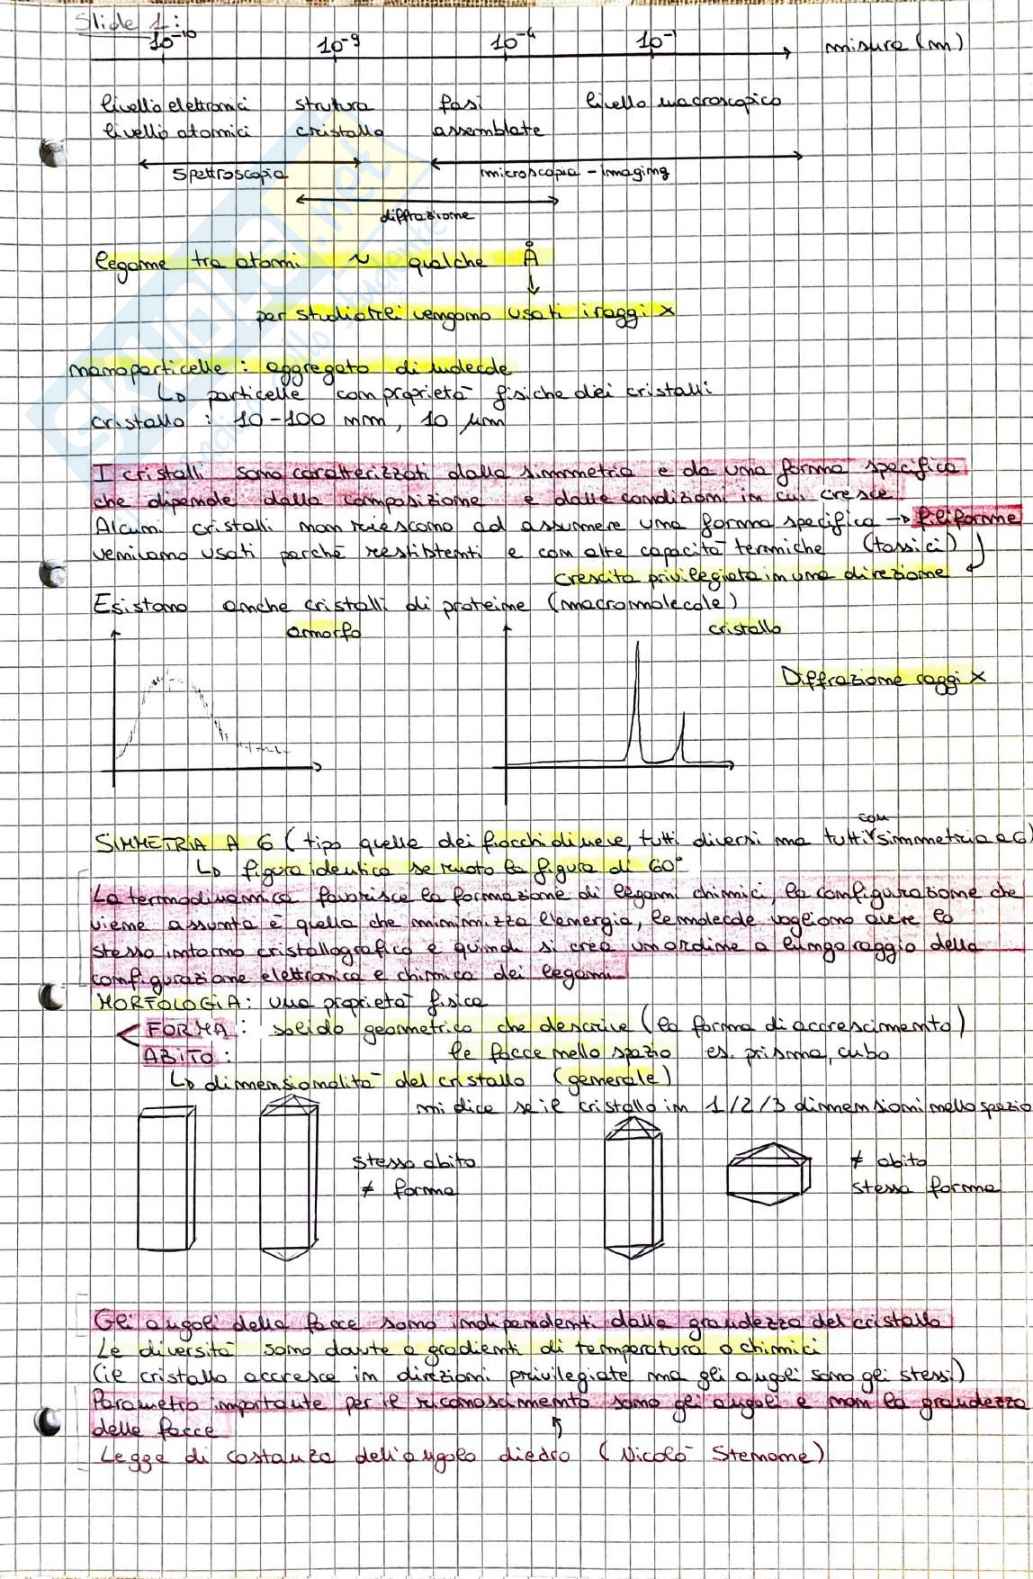 Slide 1:
10⁻¹⁰ 10⁻⁹ 10⁻⁴ 10⁻¹ misure (m)
livello elettronici strutura fasi livello macroscopico
livello atomici cristallo assemblate
spettroscopia microscopia - imaging
diffrazione
legame tra atomi ~ qualche Å
↓
per studiarli vengono usati i raggi x
nanoparticelle: aggregato di molecole
↳ particelle con proprietà fisiche dei cristalli
cristallo: 10-100 nm, 10 μm
I cristalli sono caratterizzati dalla simmetria e da una forma specifica
che dipende dalla composizione e dalle condizioni in cui cresce
Alcuni cristalli non riescono ad assumere una forma specifica → filiforme
venivano usati perchè resistenti e con alte capacità termiche (tossici)
crescita privilegiata in una direzione
Esistono anche cristalli di proteine (macromolecole)
amorfo cristallo
Diffrazione raggi x
SIMMETRIA A 6 (tipo quella dei fiocchi di neve, tutti diversi ma tutti con simmetria a 6)
↳ figura identica se ruoto la figura di 60°
La termodinamica favorisce la formazione di legami chimici, la configurazione che
viene assunta è quella che minimizza l'energia, le molecole vogliono avere lo
stesso intorno cristallografico e quindi si crea un ordine a lungo raggio della
configurazione elettronica e chimica dei legami
MORFOLOGIA: una proprietà fisica
FORMA: solido geometrico che descrive (la forma di accrescimento)
ABITO: le facce nello spazio es. prisma, cubo
↳ dimensionalità del cristallo (generale)
mi dice se il cristallo in 1/2/3 dimensioni nello spazio
stesso abito ≠ abito
≠ forma stessa forma
Gli angoli della facce sono indipendenti dalla grandezza del cristallo
Le diversità sono dovute a gradienti di temperatura o chimici
(il cristallo accresce in direzioni privilegiate ma gli angoli sono gli stessi)
Parametro importante per il riconoscimento sono gli angoli e non la grandezza
delle facce
Legge di costanza dell'angolo diedro (Nicolò Stenone)